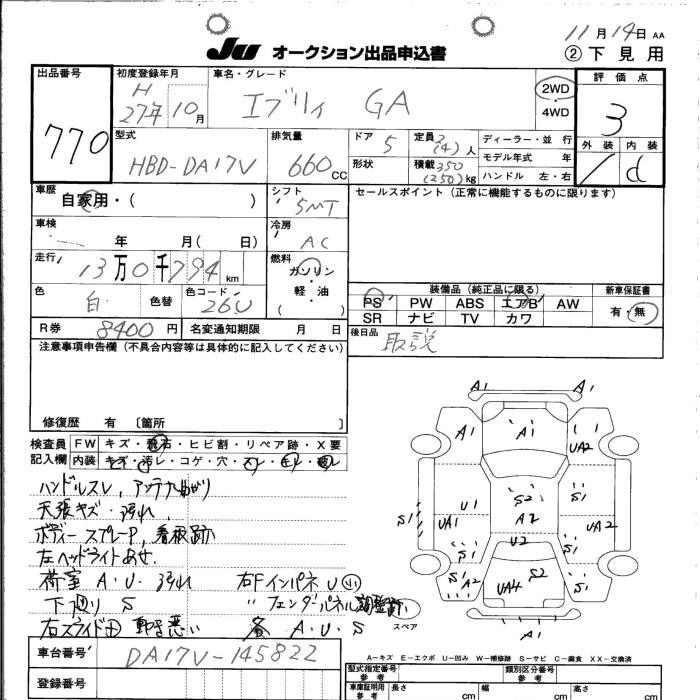 11月14日 AA
JU オークション出品申込書
② 下見用
出品番号 770
初度登録年月 H 27年10月
車名・グレード エブリィ GA
2WD
4WD
評価点 3
外装 内装 d
型式 HBD-DA17V
排気量 660 CC
ドア 5
形状
定員 2 (4) 人
積載 350 (250) kg
ディーラー・並行
モデル年式 年
ハンドル 左・右
車歴 自家用・( )
シフト 5MT
セールスポイント(正常に機能するものに限ります)
車検 年 月( 日)
冷房 AC
走行 13万0千794 km
燃料 ガソリン・軽・油 ( )
色 白 色替 色コード 26U
装備品(純正品に限る)
PS PW ABS エアB AW
SR ナビ TV カワ
新車保証書
有・無
R券 8400円 名変通知期限 月 日
後日品 取説
注意事項申告欄(不具合内容等は具体的に記入してください)
修復歴 有 〔箇所 〕
検査員記入欄
FW キズ・飛石・ヒビ割・リペア跡・X要
内装 キズ・汚レ・コゲ・穴・スレ
ハンドルスレ、アンテナ
天張キズ・汚れ
ボディー スプレーP, 看板跡
左ヘッドライトあせ
荷室 A・U・汚れ 右Fインパネ U 小
下廻り S 〃フェンダーパネル調整跡
右スライドD 動き悪い A・U・S
A1 A1
A1 A1 UA2
S2 S1
S1 UA1 U1 A2 UA2 S1
S1 U2 S1
S1 A2 UA4 S2 S1
A1
スペア
車台番号 DA17V-145822
A-キズ E-エクボ U-凹み W-補修跡 S-サビ C-腐食 XX-交換済
登録番号
型式指定番号 参考
類別区分番号 参考
車庫証明用 参考
長さ cm 幅 cm 高さ cm